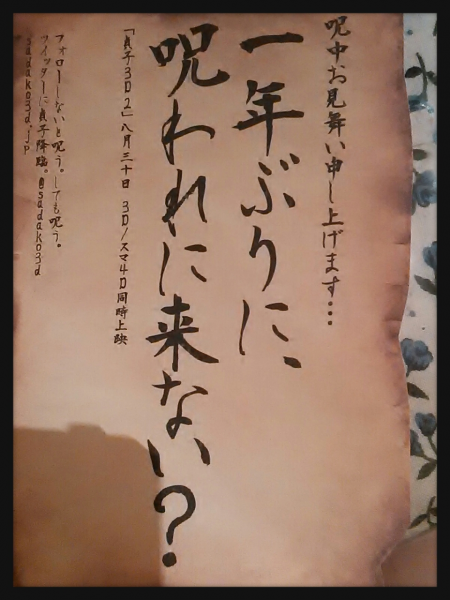 呪中お見舞い申し上げます…
一年ぶりに、
呪われに来ない？
「貞子3D2」八月三十日　3D／スマ4D同時上映
フォローしないと呪う。しても呪う。
ツイッターに貞子降臨。@sadako3d
sadako3d.jp